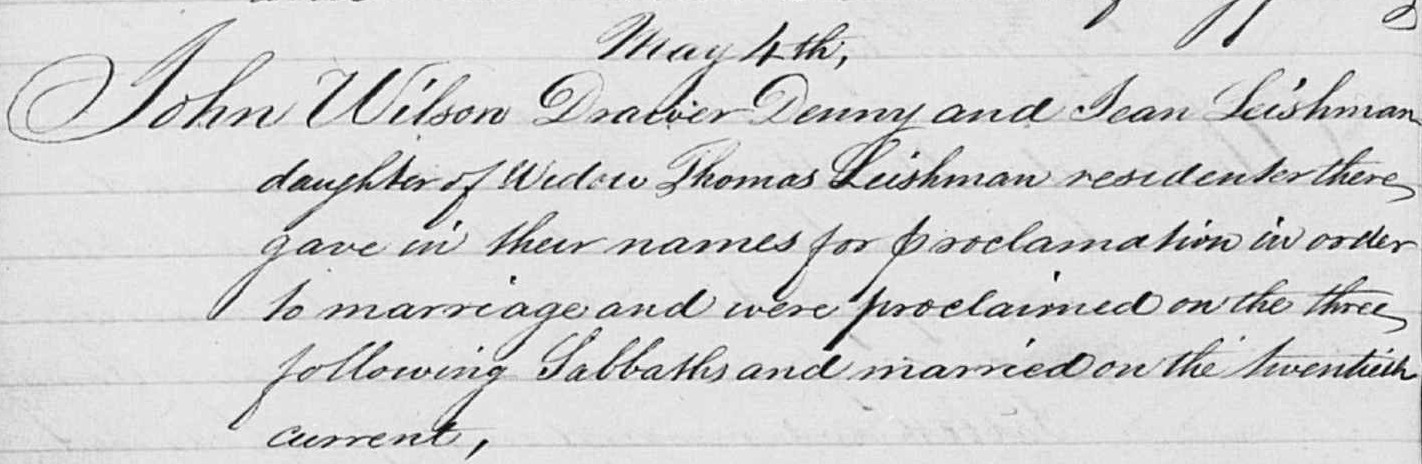 May 4th,
John Wilson Drawer Denny and Jean Leishman
daughter of Widow Thomas Leishman residenter there
gave in their names for proclamation in order
to marriage and were proclaimed on the three
following Sabbaths and married on the twentieth
current,